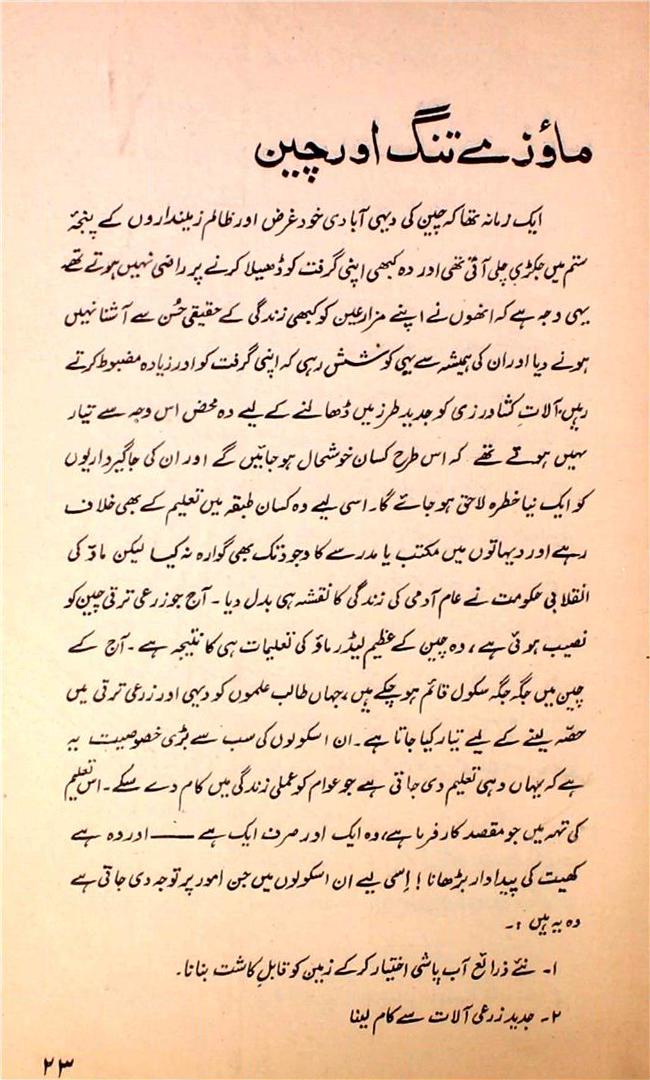 ماؤزے تنگ اور چین
ایک زمانہ تھا کہ چین کی دیہی آبادی خود غرض اور ظالم زمینداروں کے پنجۂ
ستم میں جکڑی چلی آتی تھی اور وہ کبھی اپنی گرفت کو ڈھیلا کرنے پر راضی نہیں ہوتے تھے
یہی وجہ ہے کہ انھوں نے اپنے مزارعین کو کبھی زندگی کے حقیقی حُسن سے آشنا نہیں
ہونے دیا اور ان کی ہمیشہ سے یہی کوشش رہی کہ اپنی گرفت کو اور زیادہ مضبوط کرتے
رہیں، آلاتِ کشاورزی کو جدید طرز میں ڈھالنے کے لیے وہ محض اس وجہ سے تیار
نہیں ہوتے تھے کہ اس طرح کسان خوشحال ہو جائیں گے اور ان کی جاگیرداریوں
کو ایک نیا خطرہ لاحق ہو جائے گا۔ اسی لیے وہ کسان طبقہ میں تعلیم کے بھی خلاف
رہے اور دیہاتوں میں مکتب یا مدرسے کا وجود تک بھی گوارہ نہ کیا لیکن ماؤ کی
انقلابی حکومت نے عام آدمی کی زندگی کا نقشہ ہی بدل دیا۔ آج جو زرعی ترقی چین کو
نصیب ہوئی ہے، وہ چین کے عظیم لیڈر ماؤ کی تعلیمات ہی کا نتیجہ ہے۔ آج کے
چین میں جگہ جگہ سکول قائم ہو چکے ہیں، جہاں طالب علموں کو دیہی اور زرعی ترقی میں
حصّہ لینے کے لیے تیار کیا جاتا ہے۔ ان اسکولوں کی سب سے بڑی خصوصیت یہ
ہے کہ یہاں وہی تعلیم دی جاتی ہے جو عوام کو عملی زندگی میں کام دے سکے۔ اس تعلیم
کی تہہ میں جو مقصد کارفرما ہے، وہ ایک اور صرف ایک ہے —— اور وہ ہے
کھیت کی پیداوار بڑھانا! اِسی لیے ان اسکولوں میں جن امور پر توجہ دی جاتی ہے
وہ یہ ہیں :۔
۱۔ نئے ذرائع آب پاشی اختیار کر کے زمین کو قابلِ کاشت بنانا۔
۲۔ جدید زرعی آلات سے کام لینا
۲۳